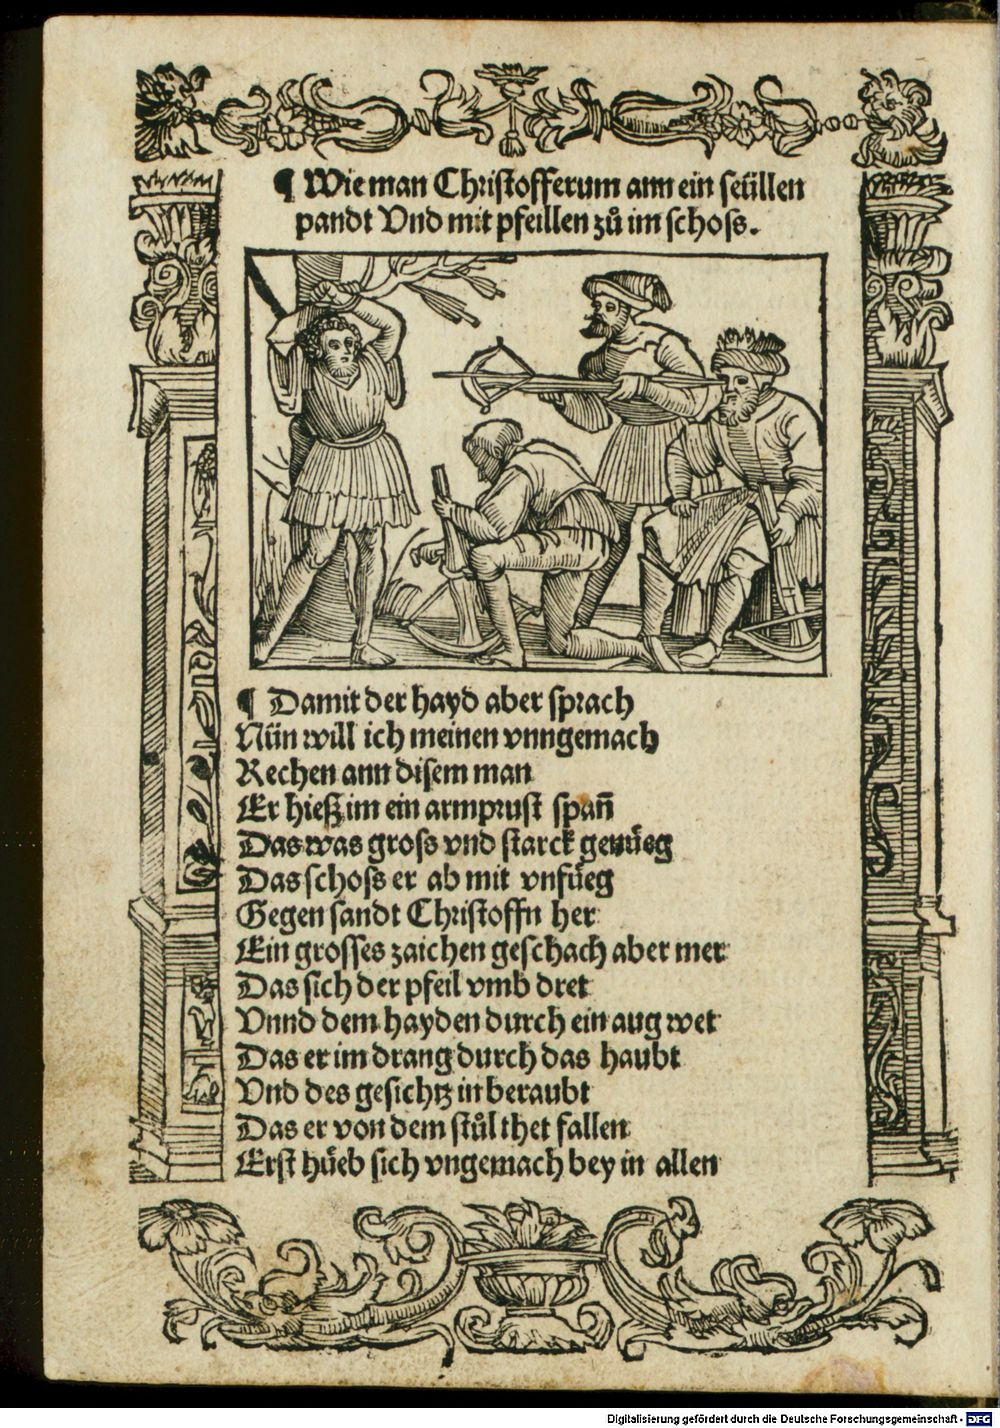 ¶ Wie man Christofferum ann ein seüllen
pandt Vnd mit pfeillen zů im schoss.
¶ Damit der hayd aber sprach
Nün will ich meinen vnngemach
Rechen ann disem man
Er hieß im ein armprust spañ
Das was gross vnd starck genüeg
Das schoss er ab mit vnfüeg
Gegen sandt Christoffn her
Ein grosses zaichen geschach aber mer
Das sich der pfeil vmb dret
Vnnd dem hayden durch ein aug wet
Das er im drang durch das haubt
Vnd des gesichtz in beraubt
Das er von dem stůl thet fallen
Erst hüeb sich vngemach bey in allen
Digitalisierung gefördert durch die Deutsche Forschungsgemeinschaft - DFG